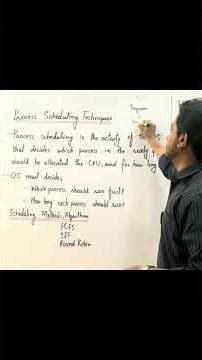 Process Scheduling Techniques
Program
- Process scheduling is the activity of the
that decides which process in the ready
should be allocated the CPU, and for how long
- OS must decides
- Which process should run first?
- How long each process should run?
Scheduling Methods/Algorithms
FCFS
SJF
Round Robin